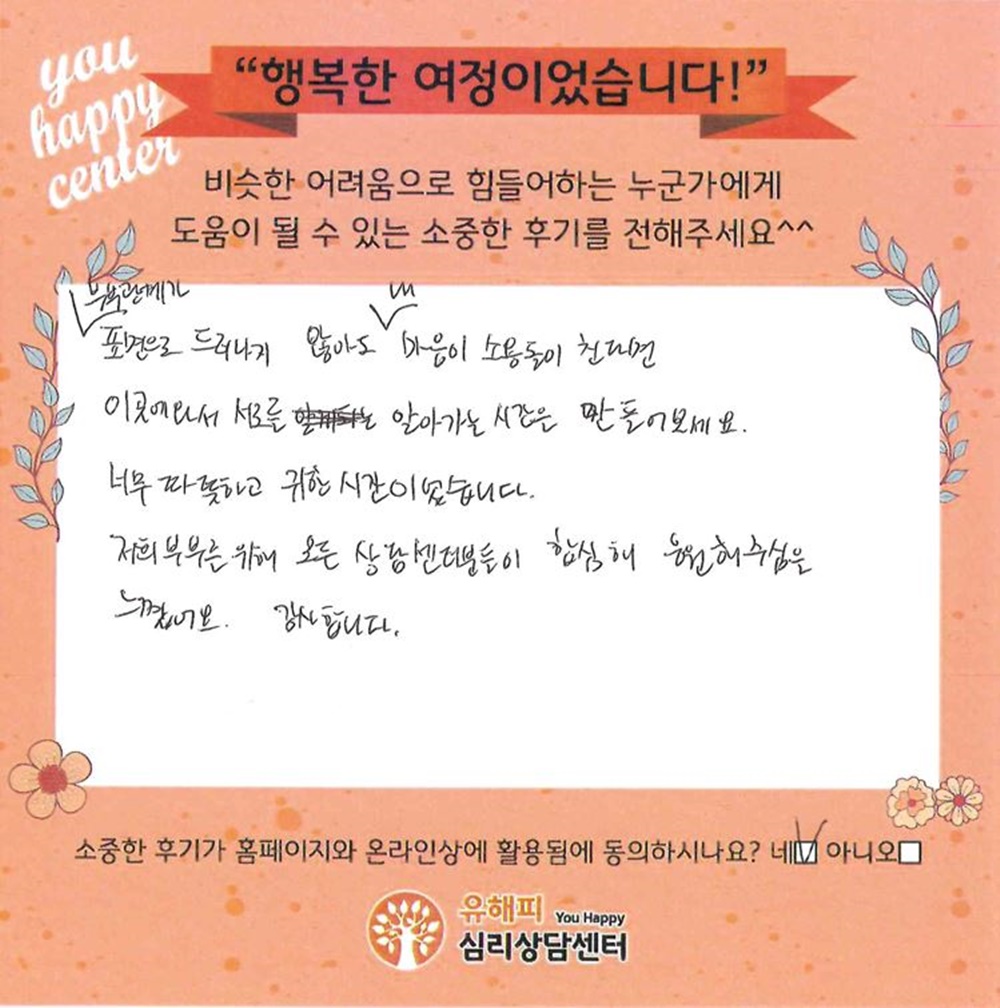 you
happy
center
“행복한 여정이었습니다!”
비슷한 어려움으로 힘들어하는 누군가에게
도움이 될 수 있는 소중한 후기를 전해주세요^^
부부관계가 내
표면으로 드러나지 않아도 마음이 소용돌이 친다면
이곳에와서 서로를 알아가는 시간은 만들어보세요.
너무 따뜻하고 귀한 시간이었습니다.
저희 부부를 위해 모든 상담센터분들이 합심해 응원해주심을
느꼈어요. 감사합니다.
소중한 후기가 홈페이지와 온라인상에 활용됨에 동의하시나요? 네 아니오
유해피 You Happy
심리상담센터